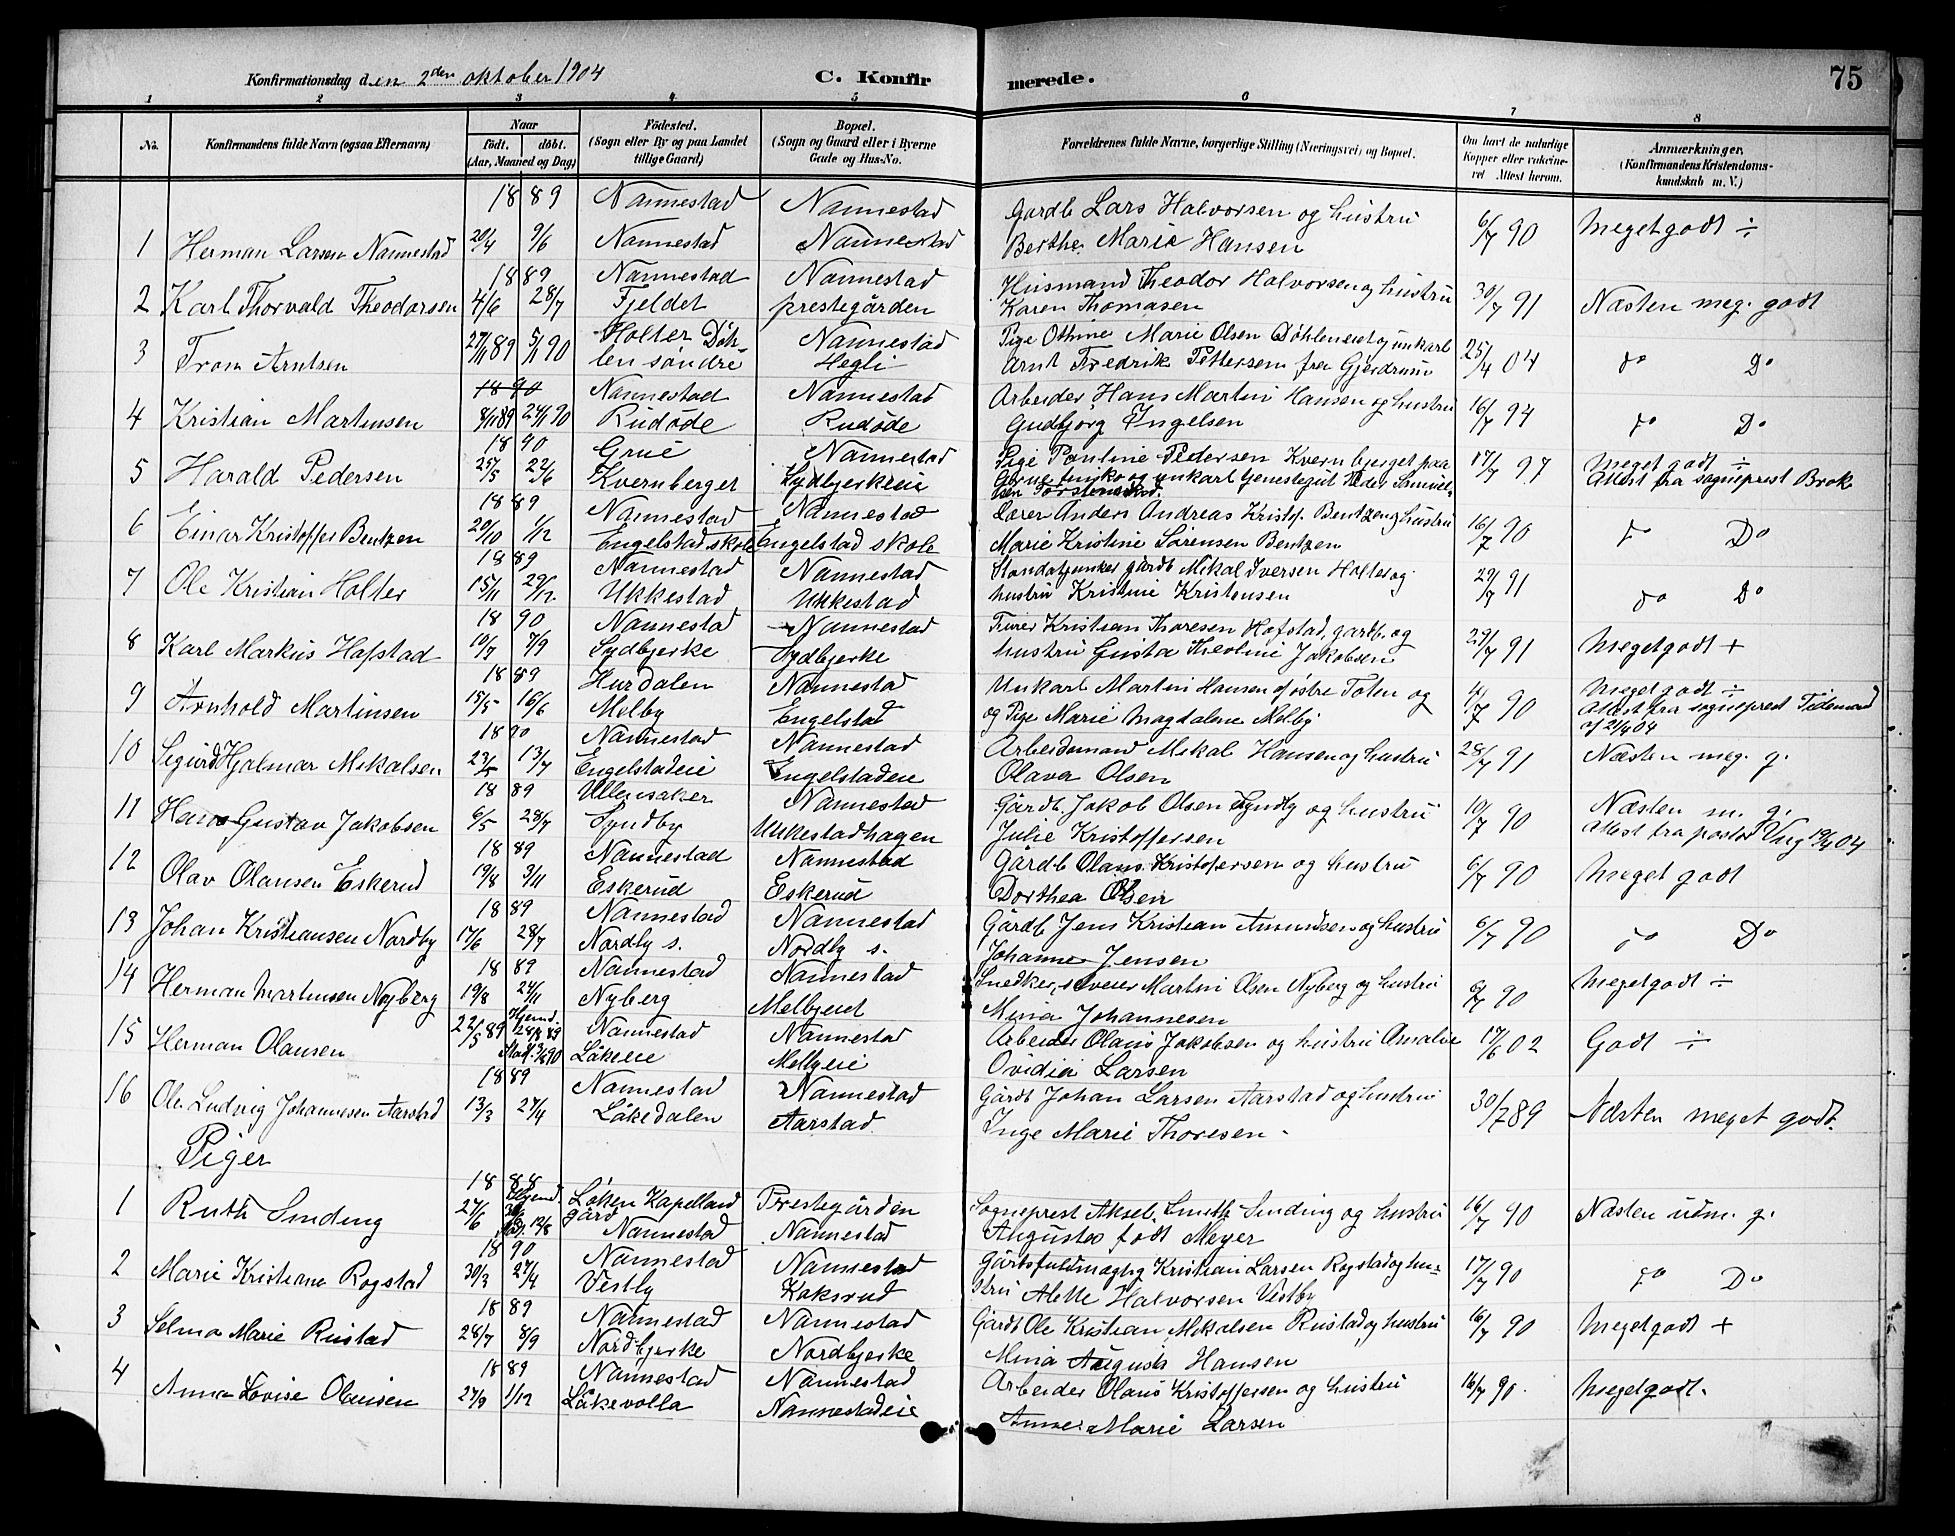 Konfirmationsdag den 2den oktober 1904 C. Konfirmerede. 75
1 2 3 4 5 6 7 8
No. Konfirmandens fulde Navn (ogsaa Efternavn) Naar født. døbt. (Aar, Maaned og Dag) Fødested. (Sogn eller By og paa Landet tillige Gaard) Bopæl. (Sogn og Gaard eller i Byerne Gade og Hus-No. Forældrenes fulde Navne, borgerlige Stilling (Næringsvei) og Bopæl. Om havt de naturlige Kopper eller vakcineret Attest herom. Anmærkninger. (Konfirmandens Kristendomskundskab m. V.)
1889 Nannestad Nannestad Gardb Lars Halvorsen og hustru
1 Herman Larsen Nannestad 20/4 9/6 Nannestad Nannestad Berthe Marie Hansen 6/7 90 Megetgodt ÷
1889 Nannestad Nannestad Husmand Theodor Halvorsen og hustru
2 Karl Thorvald Theodorsen 4/6 28/7 Fjeldet prestegården Karen Thomasen 30/7 91 Næsten meg. godt
3 Trom Arntsen 27/11 89 5/1 90 Holter Døhlen søndre Nannestad Hegli Pige Othine Marie Olsen Døhleneiet og unkarl
Arnt Fredrik Pettersen fra Gjerdrum 25/4 04 do Do
1890 Nannestad Nannestad Arbeider Hans Martin Hansen og hustru
4 Kristian Martinsen 8/11 89 24/1 90 Rudøde Rudøde Gudbjørg Ingelsen 16/7 94 do Do
1890 Grue Nannestad Pige Pauline Pedersen Kvernbjerget paa
5 Harald Pedersen 25/5 22/6 Kvernberget Sydbjerkeie Grue finsko og unkarl tjenestegut Peder Samuelsen 17/7 97 Meget godt ÷ Attest fra sogneprest Brok
1889 Nannestad Nannestad Lærer Anders Andreas Kristof. Bentzen og hustru
6 Einar Kristoffer Bentzen 20/10 1/12 Engelstad skole Engelstad skole Marie Kristine Sørensen Bentzen 16/7 90 do Do
1889 Nannestad Nannestad gårdb Mikal Iversen Holter og
7 Ole Kristian Holter 15/11 29/12 Ukkestad Ukkestad hustru Kristine Kristensen 29/7 91 do Do
1890 Nannestad Nannestad Kristian Thoresen Hafstad, gardb. og
8 Karl Markus Hafstad 10/7 7/9 Sydbjerke Sydbjerke hustru Gusta Theoline Jakobsen 29/7 91 Megetgodt +
1889 Hurdalen Nannestad Unkarl Martin Hansen af østre Toten og
9 Arnhold Martinsen 15/5 16/6 Melby Engelstad og Pige Marie Magdalene Melby 90 Meget godt ÷ Attest fra sogneprest Tidemand af 21/4 04
1890 Nannestad Nannestad Arbeidsmand Mikal Hansen og hustru
10 Sigurd Hjalmar Mikalsen 23/5 13/7 Engelstadeie Engelstadeie Olava Olsen 28/7 91 Næsten meg. g.
1889 Ullensaker Nannestad Gårdb. Jakob Olsen Syndby og hustru
11 Hans Gustav Jakobsen 6/5 28/7 Syndby Ukkestadhagen Julie Kristoffersen 10/7 90 Næsten m. g. Attest fra pastor Vang 19/4 04
1889 Nannestad Nannestad Gårdb Olaus Kristofersen og hustru
12 Olav Olausen Eskerud 19/8 3/11 Eskerud Eskerud Dorthea Olsen 6/7 90 Meget godt
1889 Nannestad Nannestad Gårdb Jens Kristian Amundsen og hustru
13 Johan Kristiansen Nordby 17/6 28/7 Nordby s. Nordby s. Johanne Jensen 6/7 90 do Do
1889 Nannestad Nannestad Snedker, Martin Olsen Nyberg og hustru
14 Herman Martinsen Nyberg 19/8 24/11 Nyberg Melbyeiet Mina Johannesen 90 Megetgodt ÷
15 Herman Olausen 22/5 89 Hjemd. 28/8 89 Stadf. 90 Nannestad Låkeeie Nannestad Melbyeie Arbeider Olaus Jakobsen og hustru Amalie
Ovidia Larsen 17/6 02 Godt ÷
1889 Nannestad Nannestad Gårdb Johan Larsen Aarstad og hustru
16 Ole Ludvig Johannesen Aarstad 13/3 27/4 Låkedalen Aarstad Inge Marie Thoresen 30/7 89 Næsten meget godt.
Piger
1888 Løken Kapellangård Prestegården Sogneprest Aksel Smith Sinding og hustru
1 Ruth Sinding 27/6 Hjemd. 12/8 Nannestad Nannestad Augusta født Meyer 16/7 90 Næsten udm. g.
1890 Nannestad Nannestad Gårdsfuldmægtig Kristian Larsen Rogstad og hu=
2 Marie Kristiane Rogstad 30/3 27/4 Vestby Koksrud stru Alette Halvorsen Vestby 17/7 90 do Do
1889 Nannestad Nannestad Gårdb Ole Kristian Mikalsen Rustad og hustru
3 Selma Marie Rustad 28/7 8/9 Nordbjerke Nordbjerke Mina Augusta Hansen 16/7 90 Megetgodt +
1889 Nannestad Nannestad Arbeider Olaus Kristoffersen og hustru
4 Anna Lovise Olausen 27/9 1/12 Låkevolla Nannestadeie Anne Marie Larsen 16/7 90. Megetgodt.